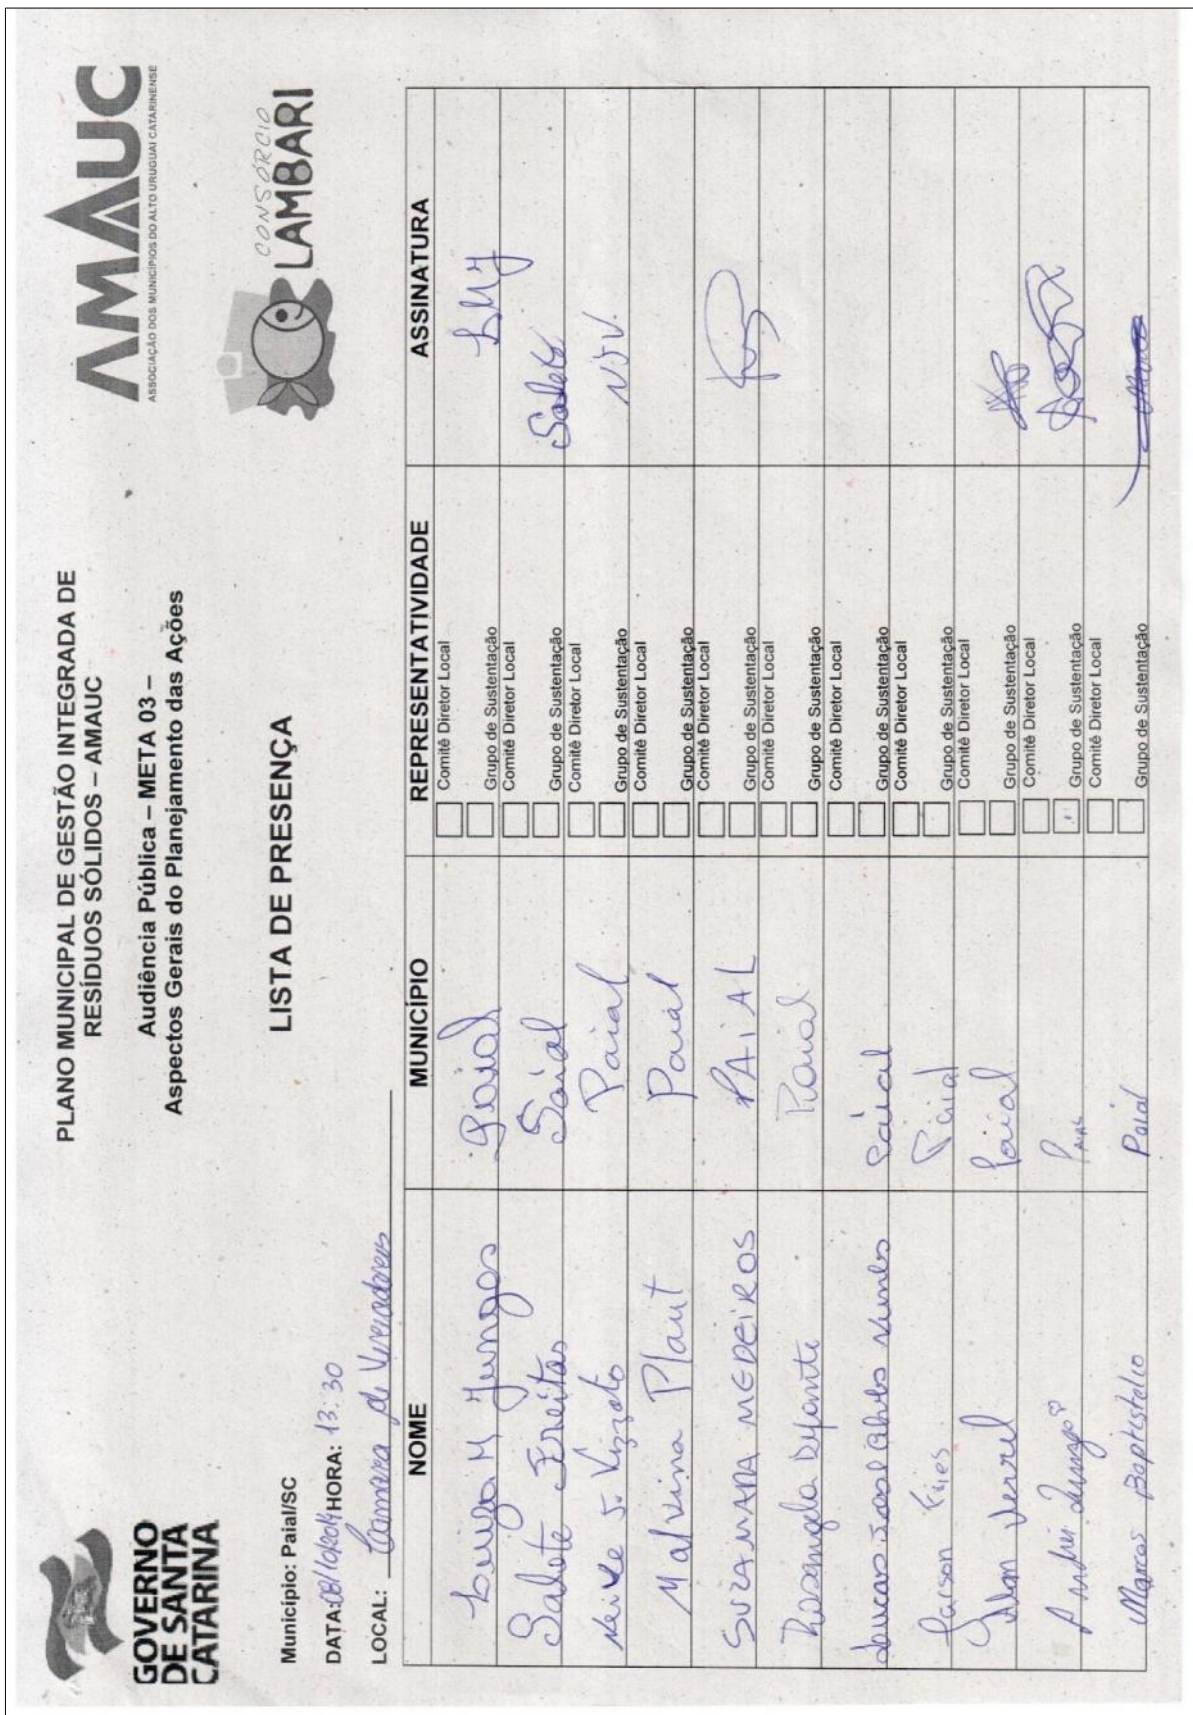 GOVERNO
DE SANTA
CATARINA
PLANO MUNICIPAL DE GESTÃO INTEGRADA DE
RESÍDUOS SÓLIDOS – AMAUC
Audiência Pública – META 03 –
Aspectos Gerais do Planejamento das Ações
AMAUC
ASSOCIAÇÃO DOS MUNICÍPIOS DO ALTO URUGUAI CATARINENSE
CONSÓRCIO
LAMBARI
LISTA DE PRESENÇA
Município: Paial/SC
DATA: HORA: 13:30
LOCAL: Camara de Vereadores
NOME MUNICÍPIO REPRESENTATIVIDADE ASSINATURA
M Paial Comitê Diretor Local
Grupo de Sustentação
Salete Freitas Paial Comitê Diretor Local Salete
Grupo de Sustentação
Paial Comitê Diretor Local N.J.V.
Grupo de Sustentação
Malvina Plaut Paial Comitê Diretor Local
Grupo de Sustentação
SUZAMARA MEDEIROS PAIAL Comitê Diretor Local
Grupo de Sustentação
Rosangela Paial Comitê Diretor Local
Grupo de Sustentação
Nunes Paial Comitê Diretor Local
Grupo de Sustentação
Paial Comitê Diretor Local
Grupo de Sustentação
Paial Comitê Diretor Local
Grupo de Sustentação
Comitê Diretor Local
Grupo de Sustentação
Marcos Paial Comitê Diretor Local
Grupo de Sustentação